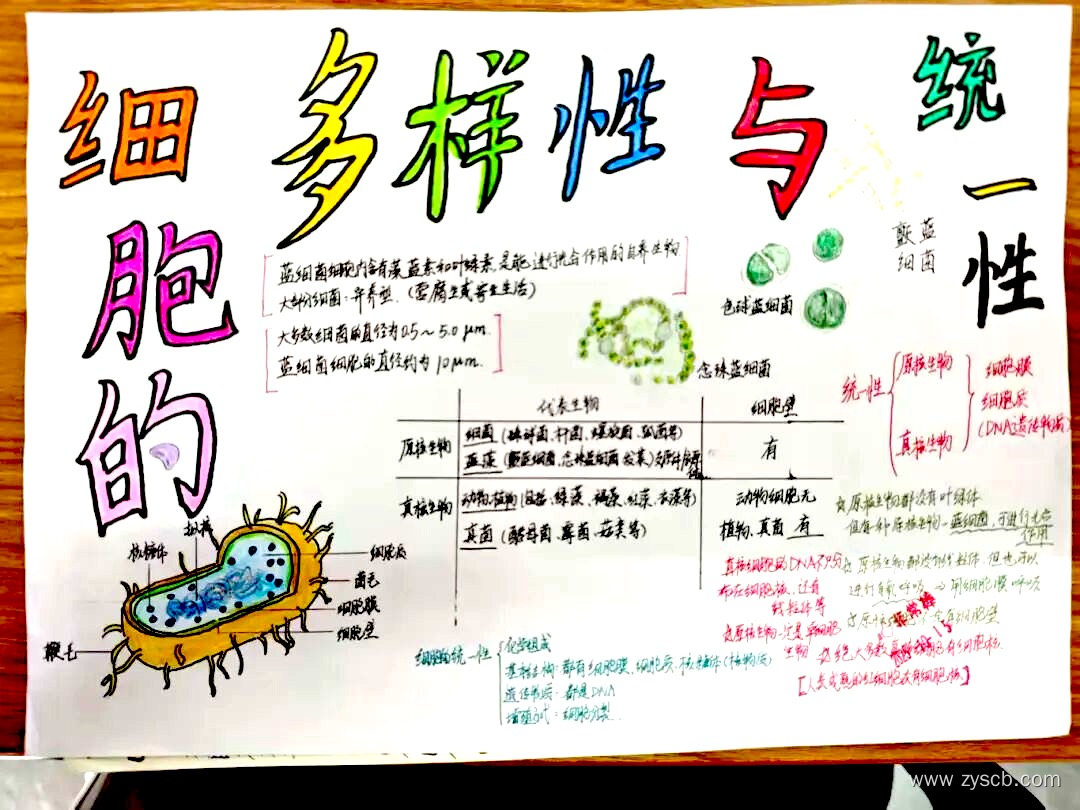 细胞的
多样性与
统一性
蓝细菌细胞内含有藻蓝素和叶绿素,是能进行光合作用的自养生物
大部分细菌:异养型.(营腐生或寄生生活)
大多数细菌的直径为0.5~5.0μm.
蓝细菌细胞的直径约为10μm.
颤蓝
细菌
色球蓝细菌
念珠蓝细菌
代表生物
细胞壁
原核生物
细菌(球菌、杆菌、螺旋菌、弧菌等)
蓝藻(颤蓝细菌、念珠蓝细菌、发菜)
有
真核生物
动物、植物(
绿藻、褐藻、红藻、
真菌(酵母菌、霉菌、菇类等)
动物细胞无
植物、真菌 有
统一性
原核生物
真核生物
细胞膜
细胞质
(DNA遗传物质)
拟核
核糖体
细胞质
菌毛
细胞膜
细胞壁
鞭毛
原核生物都没有叶绿体
但有种原核生物-蓝细菌,可进行光合
作用
原核生物都没有线粒体 但也可以
进行有氧呼吸
真核细胞的DNA不只分
布在细胞核,还有
线粒体等
原核生物一定是单细胞
生物
绝大多数
有细胞核.
[人类成熟的红细胞没有细胞核]
细胞的统一性
化学组成
基本结构:都有细胞膜、细胞质、核糖体(
遗传物质:都是DNA
增殖方式:细胞分裂.
www.zyscb.com